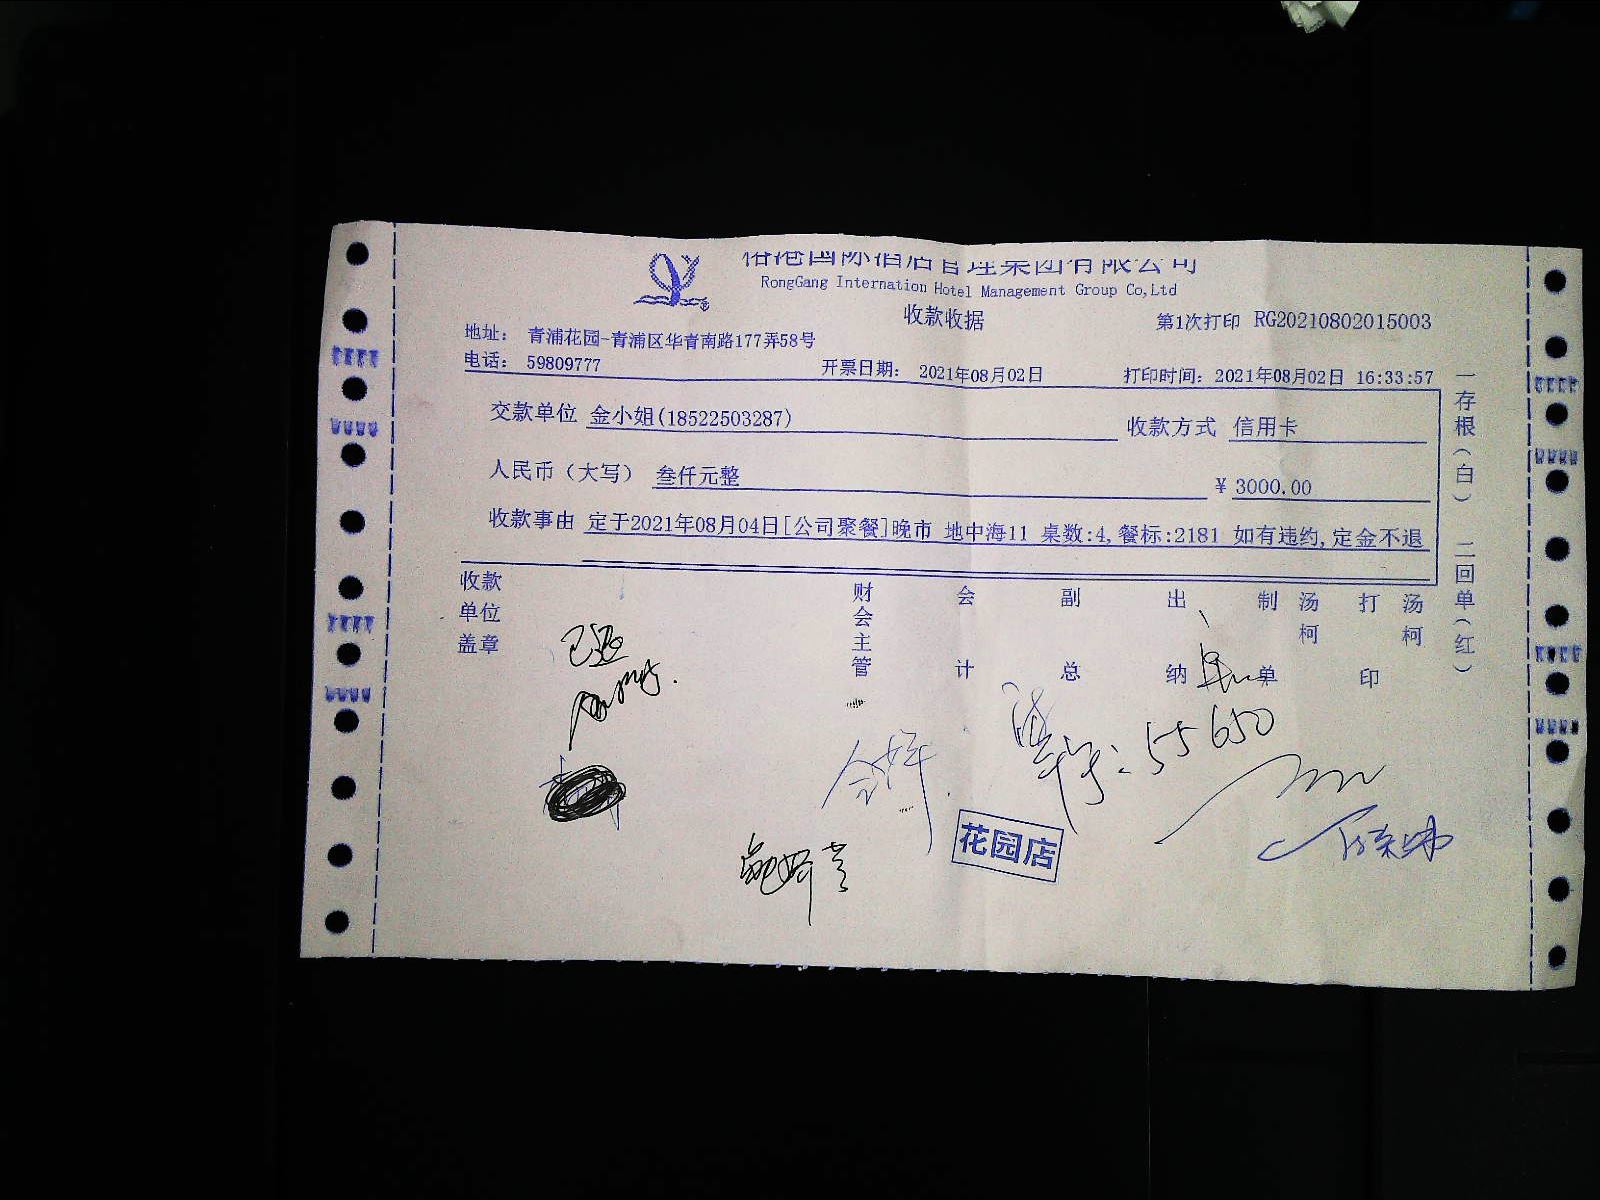 国际酒店管理集团有限公司
RongGang Internation Hotel Management Group Co,Ltd
收款收据
第1次打印 RG20210802015003
地址： 青浦花园-青浦区华青南路177弄58号
电话： 59809777
开票日期： 2021年08月02日
打印时间：2021年08月02日 16:33:57
交款单位 金小姐(18522503287)
收款方式 信用卡
人民币（大写） 叁仟元整
¥ 3000.00
收款事由 定于2021年08月04日[公司聚餐]晚市 地中海11 桌数:4,餐标:2181 如有违约,定金不退
一存根（白） 二回单（红）
收款单位盖章
财会主管
会计
副总
出纳
制单
汤柯
打印
汤柯
已退
55650
花园店